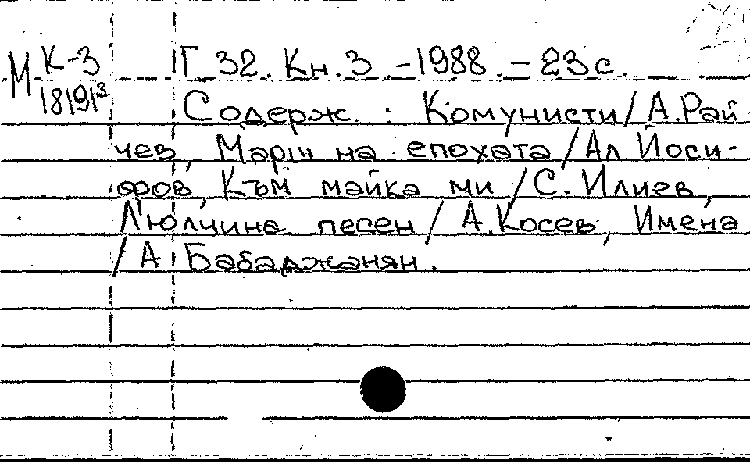 М К-3 Г 32. Кн. 3 - 1988. - 23 с.
18191³ Содерж. : Комунисти / А. Рай
чев, Марш на епохата / Ал Йоси-
фов, Към майка ми / С. Илиев,
Люлчина песен / А. Косев, Имена
/ А. Бабаджанян.